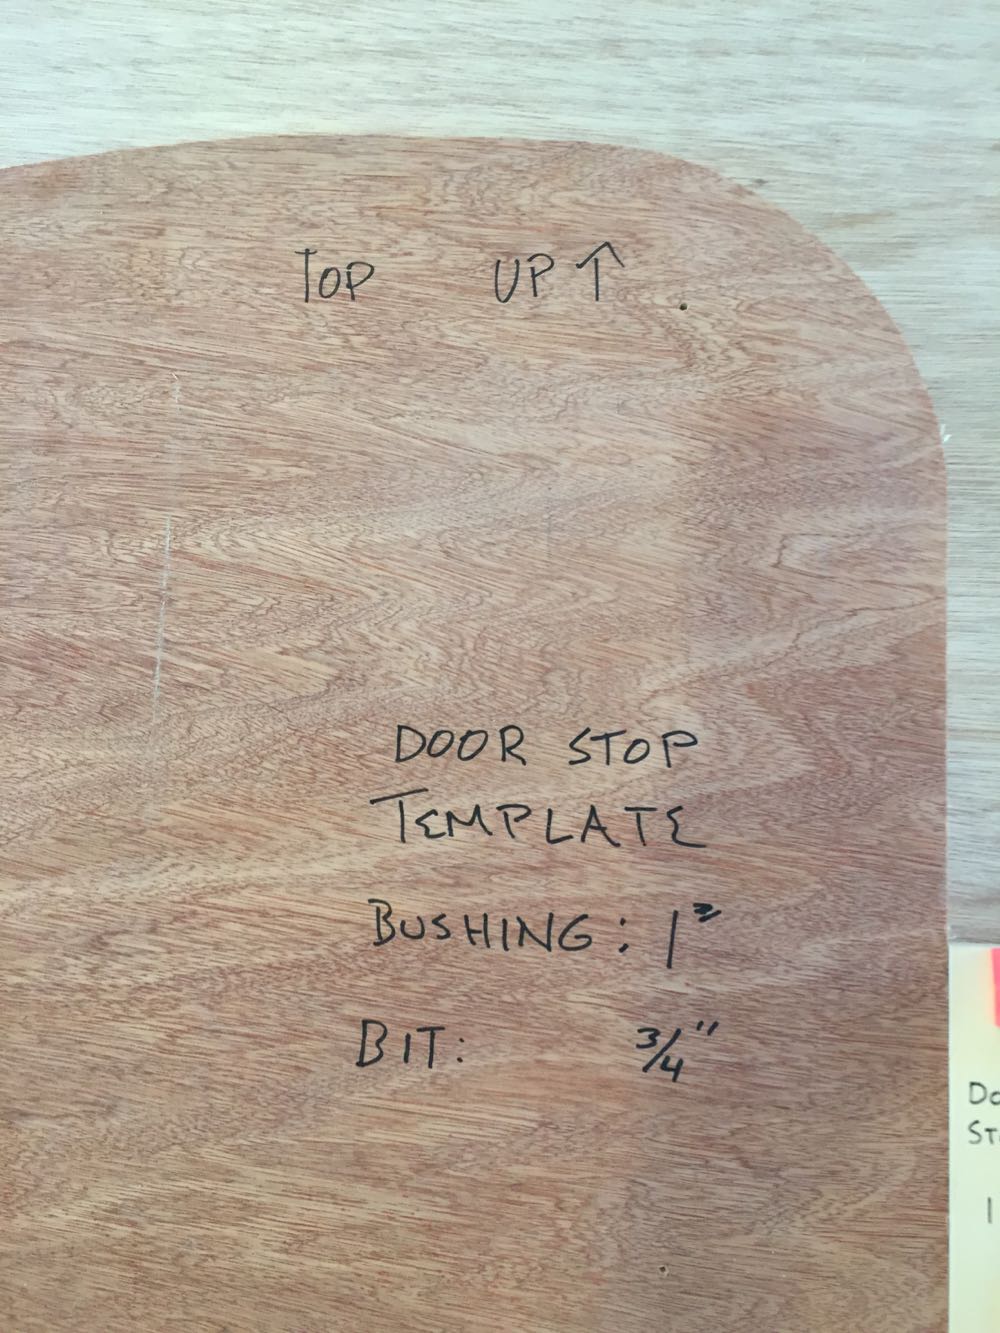 TOP UP ↑
DOOR STOP
TEMPLATE
BUSHING: 1"
BIT: 3/4"